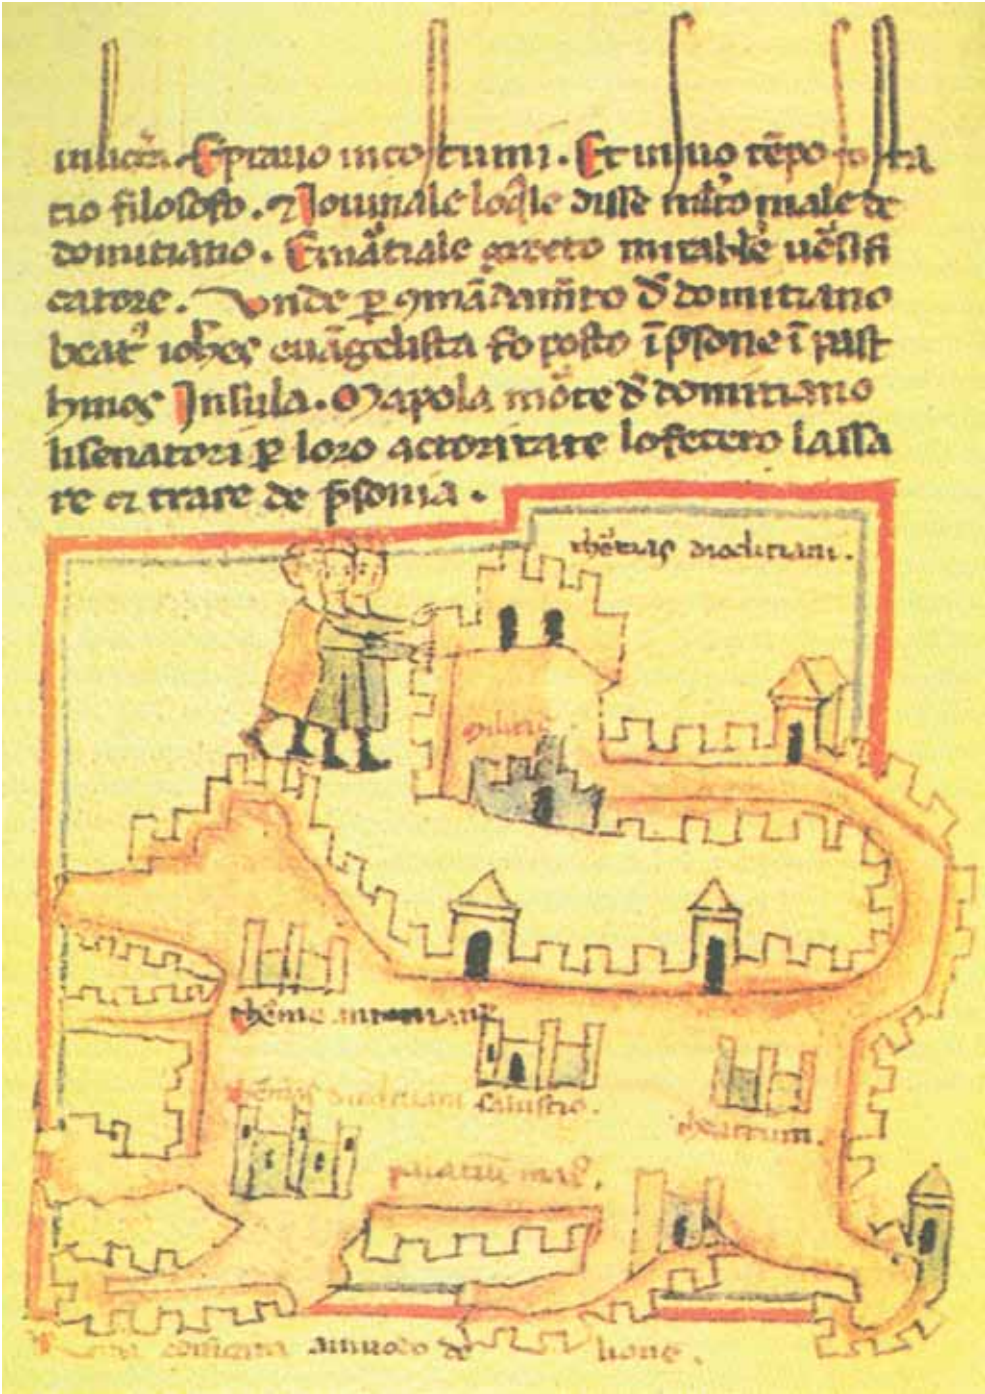 Et in suo tēpo fo sta
tio filosofo. ⁊ Jouinale loq̄le disse mlto male de
domitiano. Emātiale greco mirable ūsifi
catore. Unde ꝑ 9mādamēto đ domitiano
beat9 iohes euāgelista fo posto ī p̄sone ī past
hmos Insula. Mapola mōte đ domitiano
li senatori ꝑ loro actoritate lo fecero lassa
re et trare de p̄sonia.
thermas diocliciani.
militie
therme
thermas diocliciani salustio.
theatrum.
palatiū mai9.
a modo de lione.